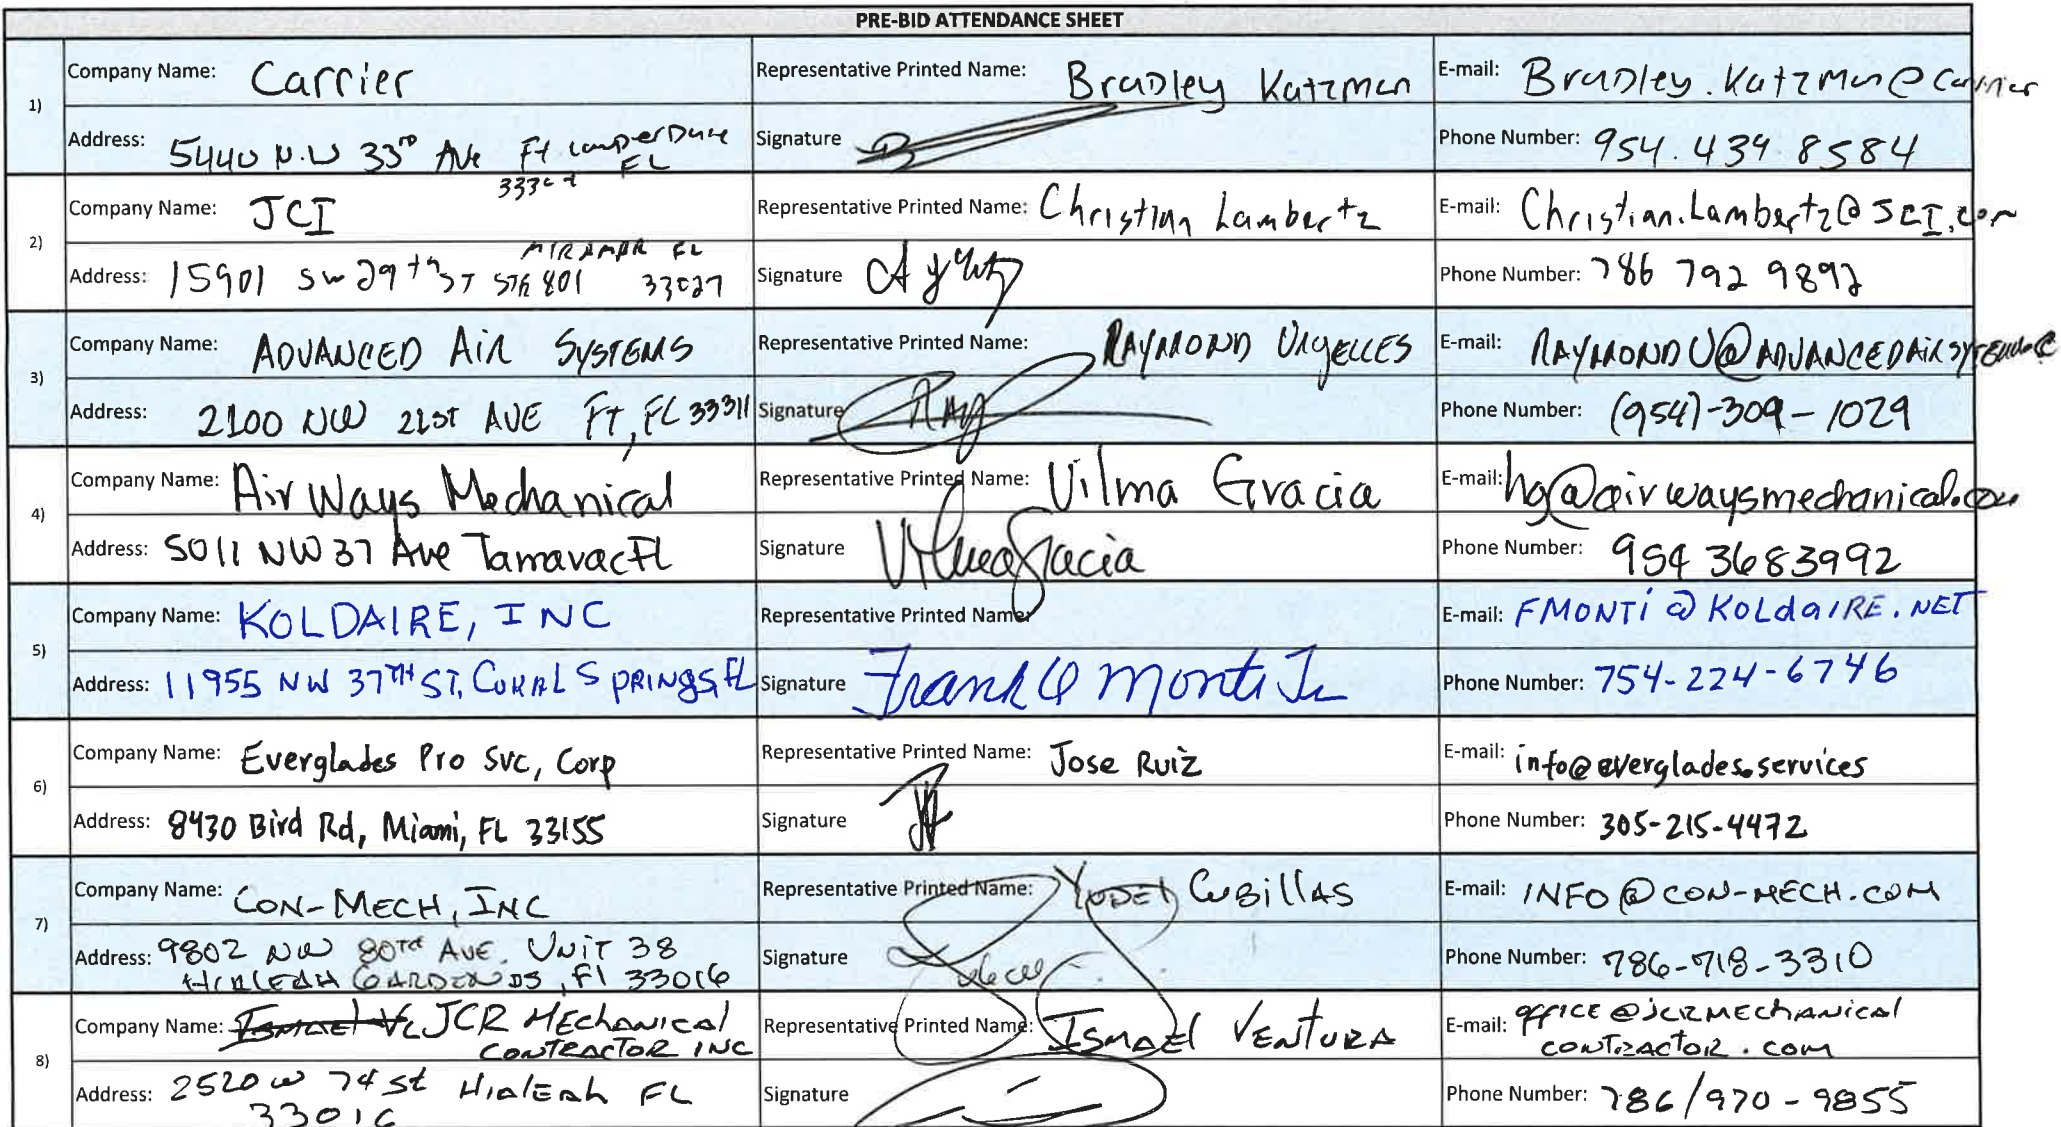 PRE-BID ATTENDANCE SHEET
1)
Company Name: Carrier
Representative Printed Name: Bradley Katzman
E-mail: Bradley.Katzman@carrier
Address: 5440 N.W 33rd Ave Ft Lauderdale FL
Signature
Phone Number: 954.439 8584
2)
Company Name: JCI
Representative Printed Name: Christian Lambertz
E-mail: Christian.Lambertz@JCI.com
MIRAMAR FL
Address: 15901 SW 29th ST STE 801 33027
Signature
Phone Number: 786 792 9892
3)
Company Name: ADVANCED AIR SYSTEMS
Representative Printed Name: RAYMOND URGELLES
E-mail: RAYMONDU@ADVANCEDAIRSYSTEMS
Address: 2100 NW 21ST AVE FT, FL 33311
Signature Ray
Phone Number: (954)-309-1029
4)
Company Name: Air Ways Mechanical
Representative Printed Name: Vilma Gracia
E-mail: hg@airwaysmechanical.com
Address: 5011 NW 37 Ave Tamarac FL
Signature Vilma Gracia
Phone Number: 954 3683992
5)
Company Name: KOLDAIRE, INC
Representative Printed Name:
E-mail: FMONTi@KOLdaIRE.NET
Address: 11955 NW 37TH ST, CORAL SPRINGS, FL
Signature Frank Monti Jr
Phone Number: 754-224-6746
6)
Company Name: Everglades Pro Svc, Corp
Representative Printed Name: Jose Ruiz
E-mail: info@everglades.services
Address: 8430 Bird Rd, Miami, FL 33155
Signature
Phone Number: 305-215-4472
7)
Company Name: CON-MECH, INC
Representative Printed Name: YODEL CUBILLAS
E-mail: INFO@CON-MECH.COM
Address: 9802 NW 80TH AVE. UNIT 38
HIALEAH GARDENDS, Fl 33016
Signature
Phone Number: 786-718-3310
8)
Company Name: JCR MECHANICAL
CONTRACTOR INC
Representative Printed Name: ISMAEL VENTURA
E-mail: OFFICE@JCRMECHANICAL
CONTRACTOR.COM
Address: 2520 W 74 St HIALEAH FL
33016
Signature
Phone Number: 786/970-9855